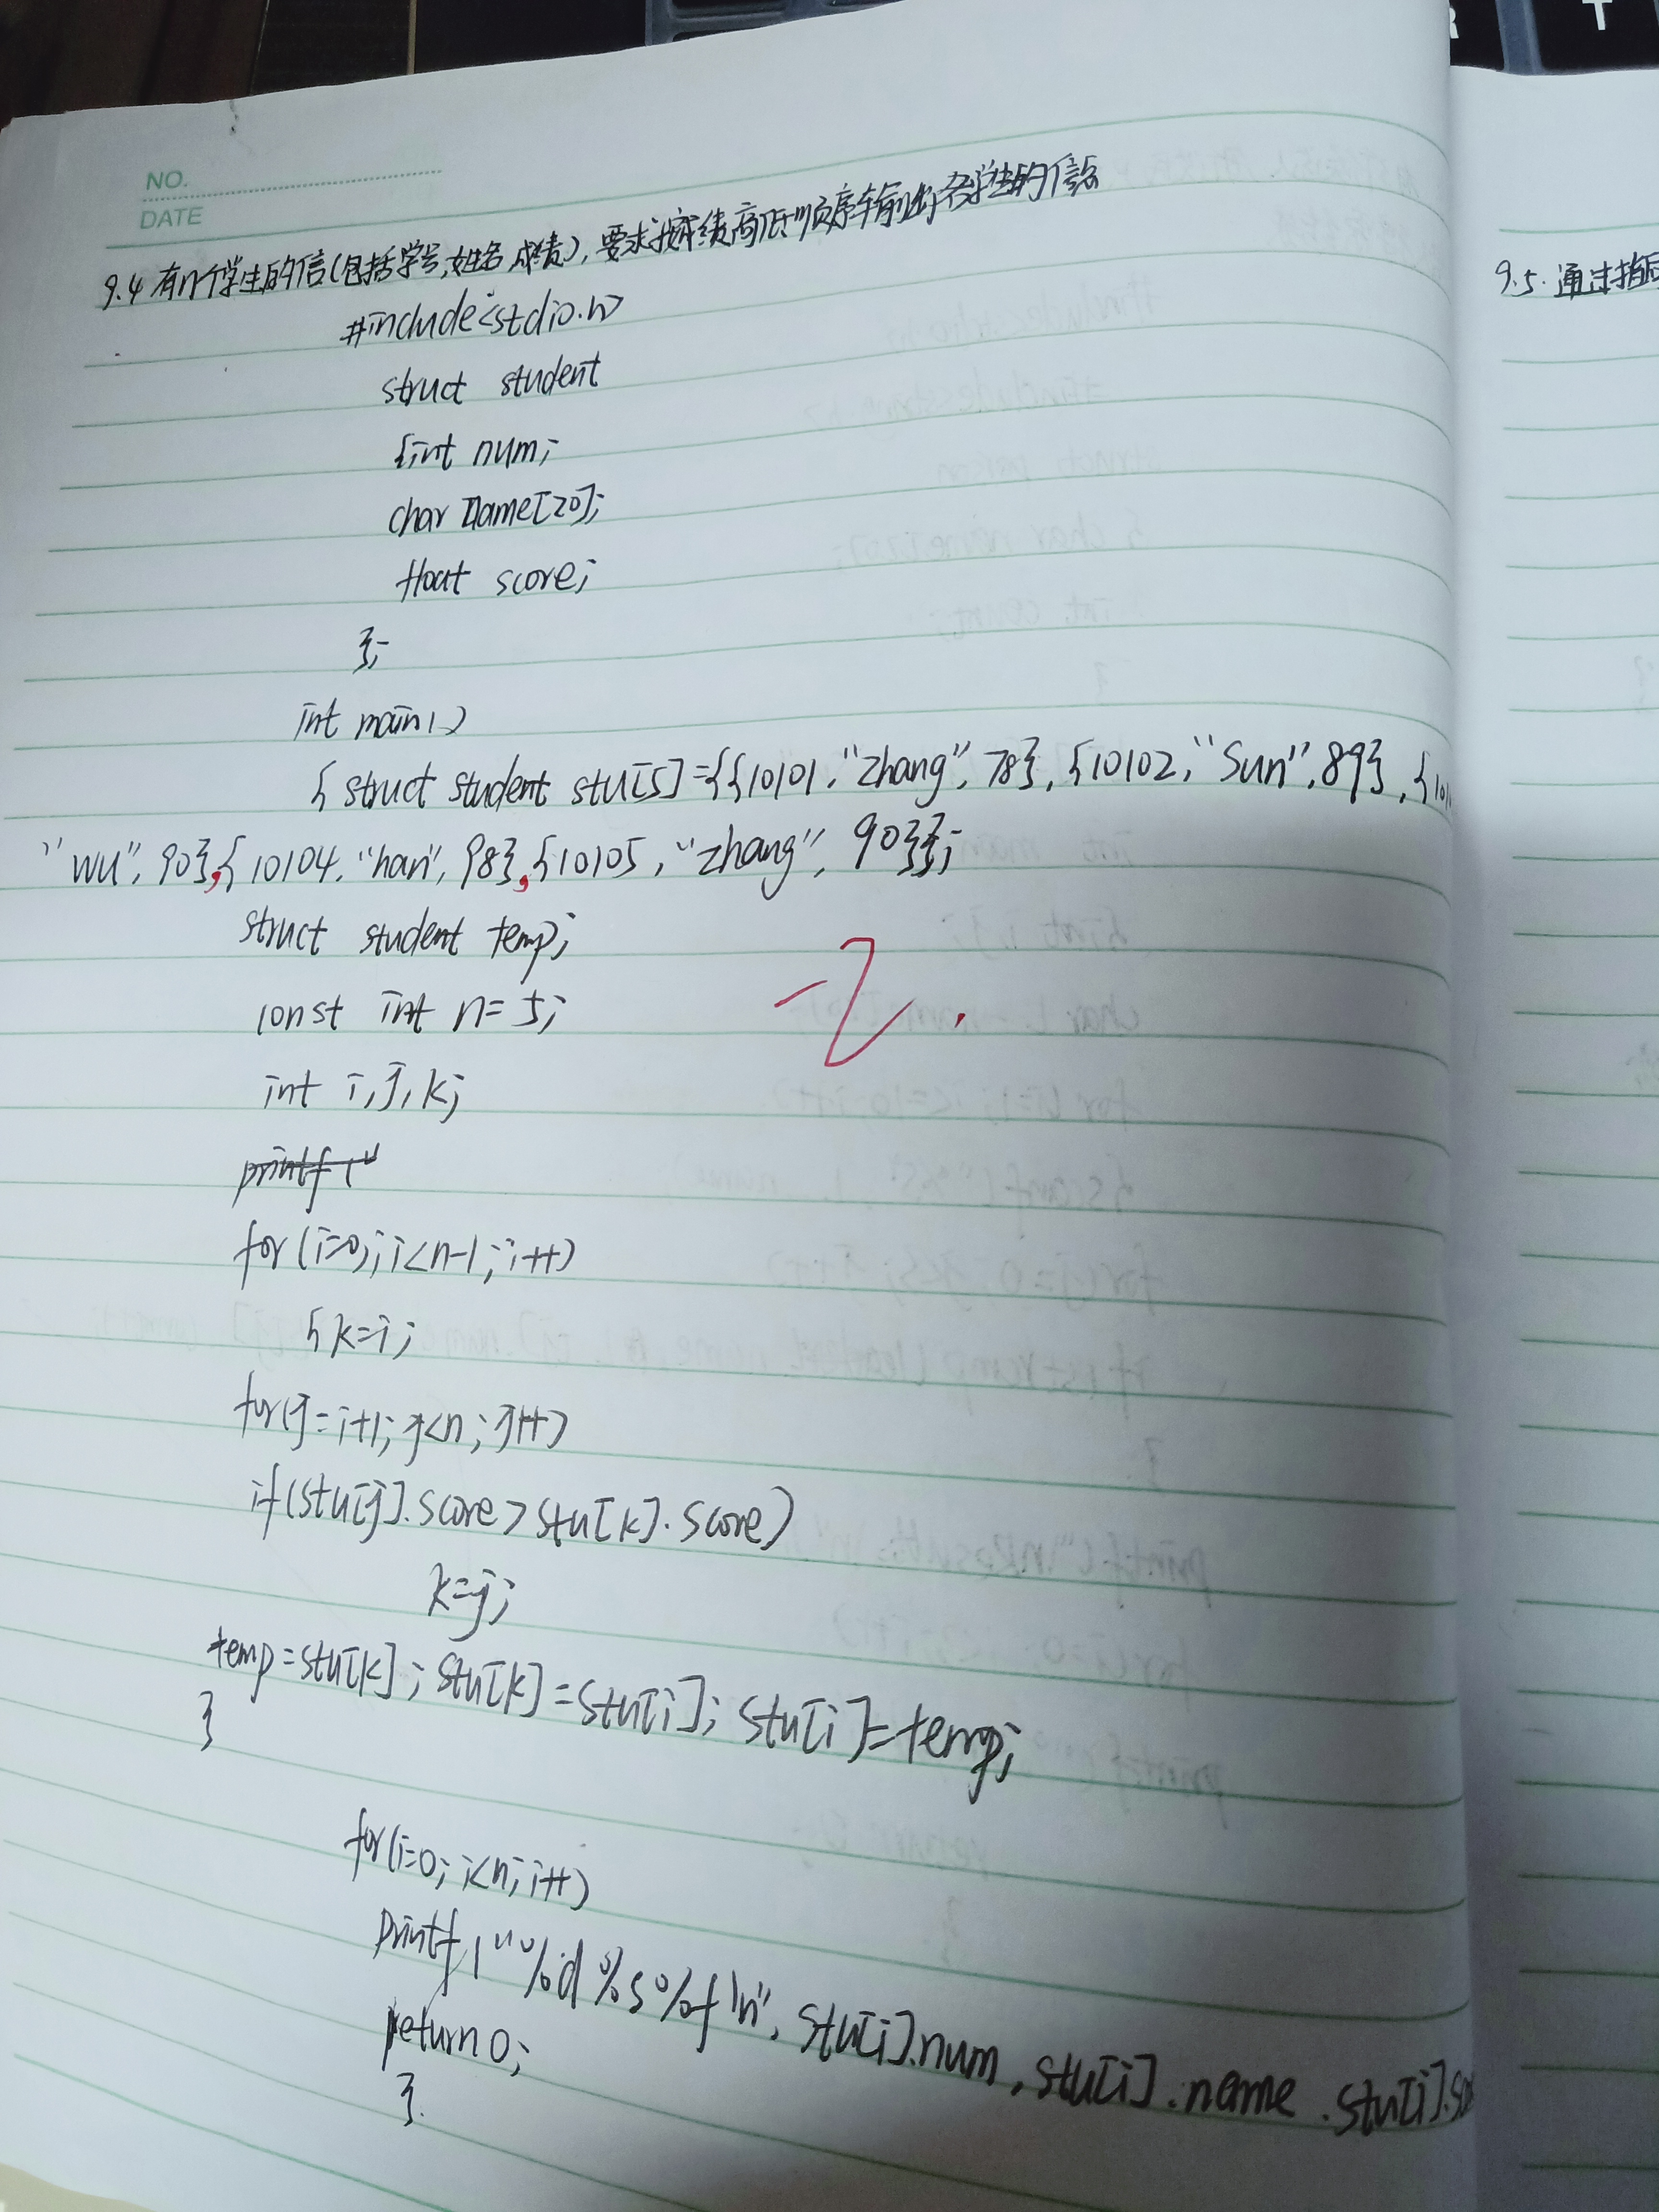 NO.
DATE
9.4 有n个学生的信(包括学号,姓名,成绩),要求按成绩高低顺序输出各学生的信息
#include<stdio.h>
struct student
{int num;
char name[20];
float score;
};
int main()
{ struct student stu[5]={{10101,"zhang",78},{10102,"Sun",89},{101
"wu",90},{10104,"han",98},{10105,"zhang",90}};
struct student temp;
-2.
const int n=5;
int i,j,k;
printf("
for(i=0;i<n-1;i++)
{k=i;
for(j=i+1;j<n;j++)
if(stu[j].score>stu[k].score)
k=j;
temp=stu[k];stu[k]=stu[i];stu[i]=temp;
}
for(i=0;i<n;i++)
printf("%d%s%f\n",stu[i].num,stu[i].name.stu[i].
return0;
}.
9.5.通过指
T